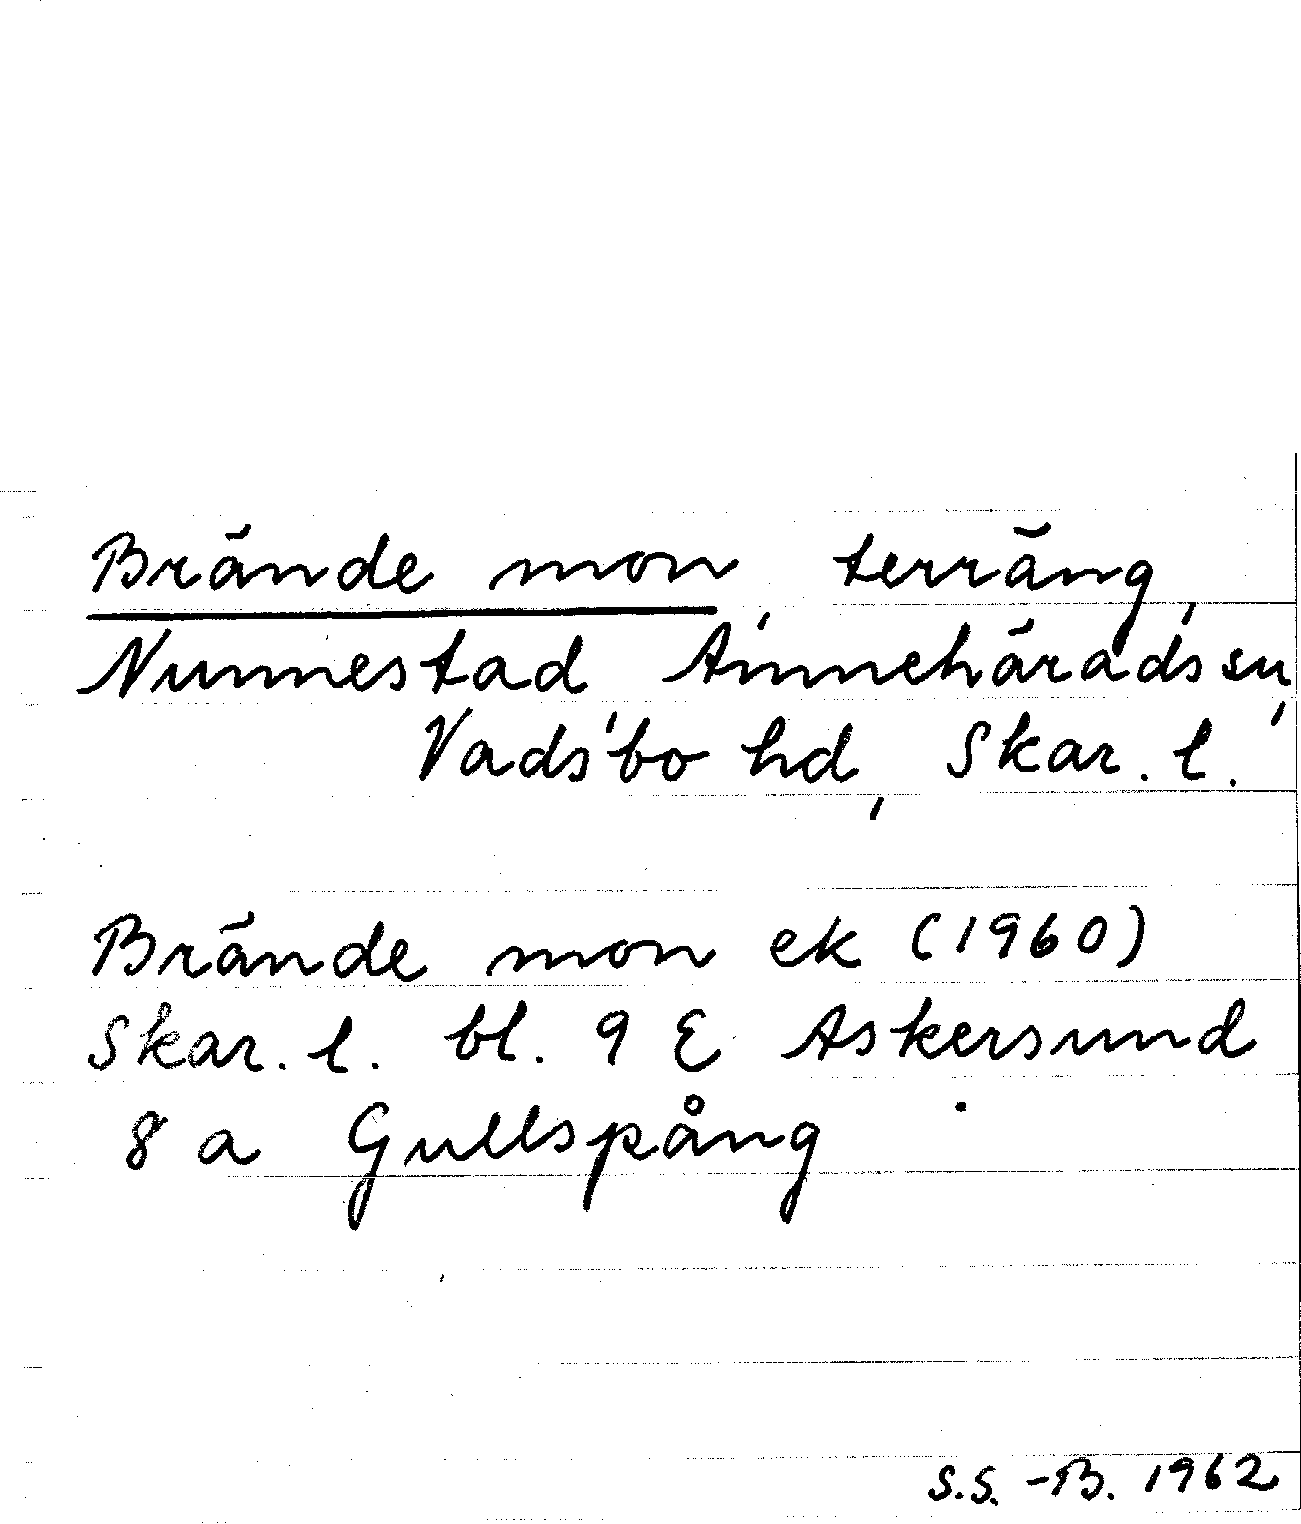 Brände mon, terräng,
Nunnestad, Amnehärads sn,
Vadsbo hd, Skar. l.
Brände mon ek (1960)
Skar. l. bl. 9 E Askersund
8 a Gullspång
S.S.-B. 1962